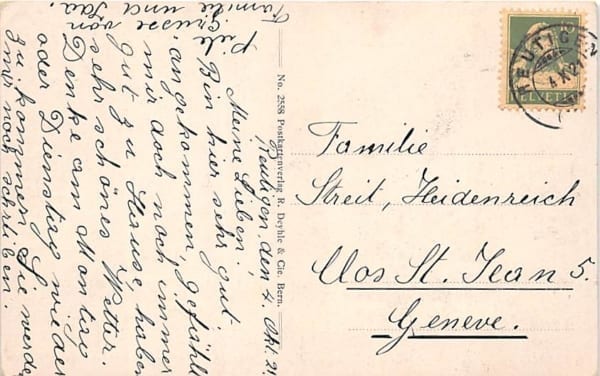 Reutigen, den 4. Okt. 21.
Meine Lieben!
Bin hier sehr gut
angekommen, gefällt
mir doch noch immer
gut zu Hause haben
sehr schönes Wetter.
Denke am Montag
oder Dienstag wieder
zu kommen. Sie werden
mir noch schreiben.
Viele Grüsse von
Familie und
No. 2558 Postkartenverlag R. Deyhle & Cie. Bern.
REUTIGEN
4. X. 21
HELVETIA
Familie
Streit, Heidenreich
Clos St. Jean 5.
Geneve.